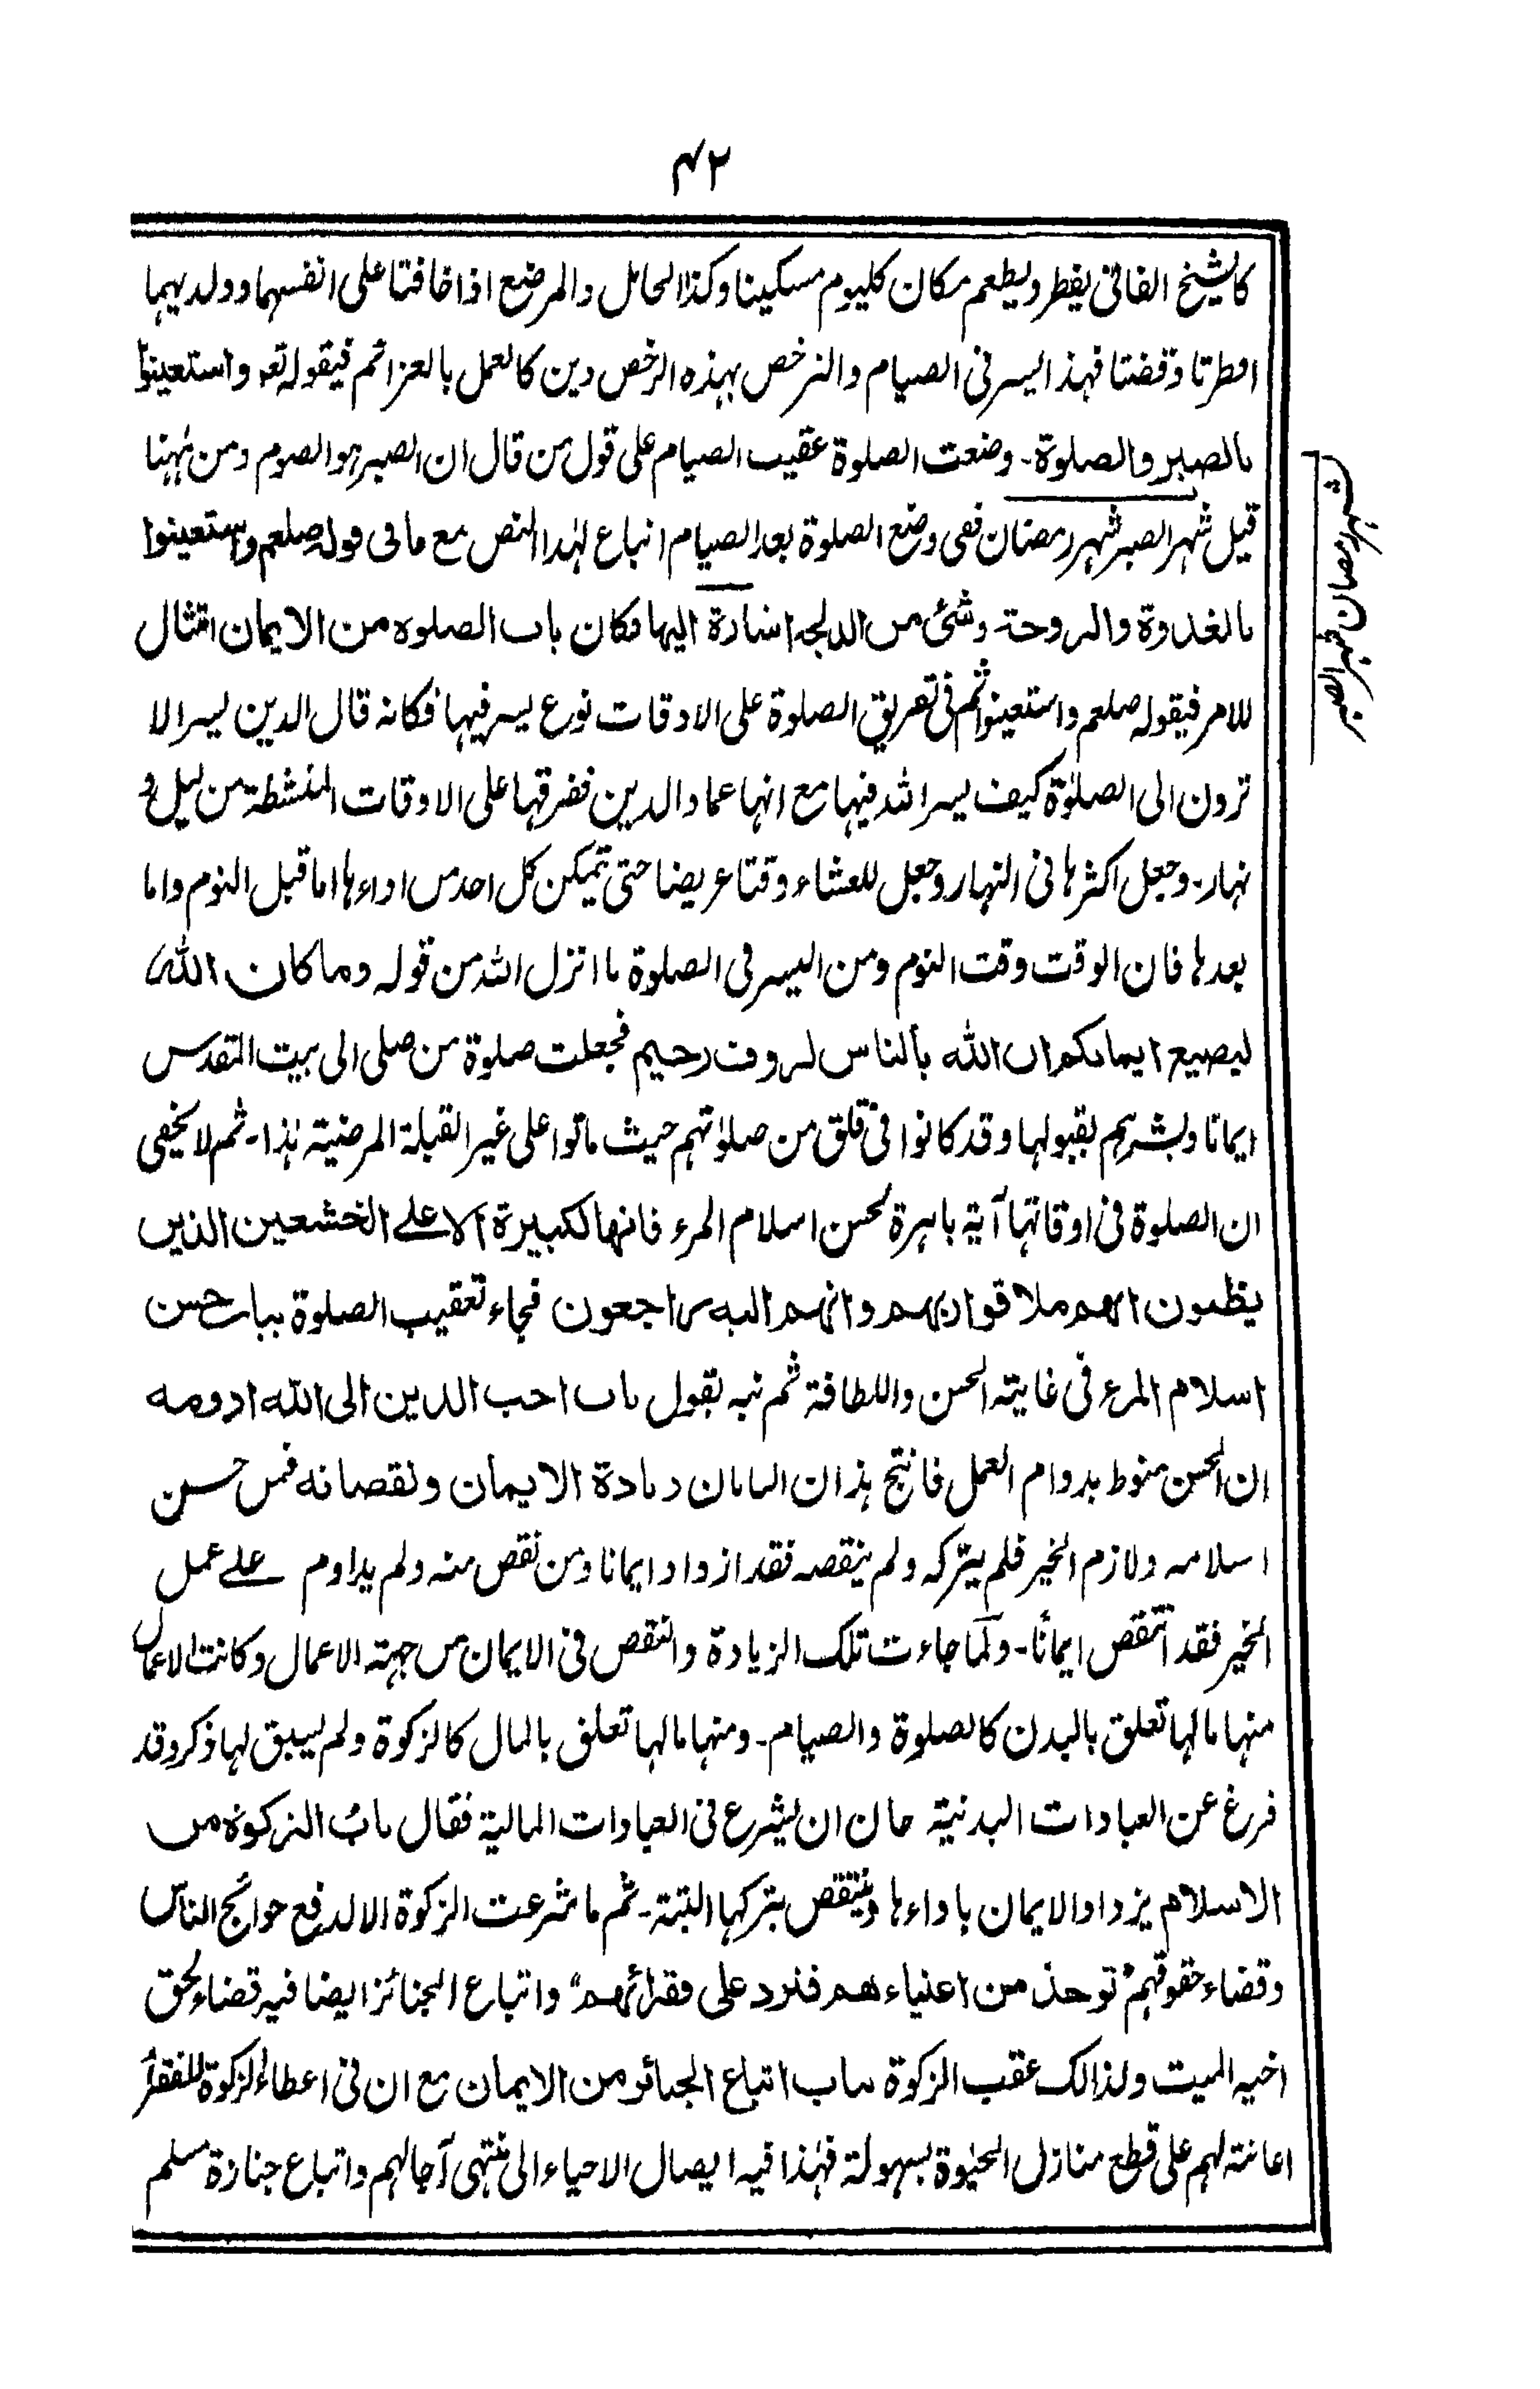 ۴۲
كالشيخ الفانى يفطر ويطعم مكان كليوم مسكينا وكذا الحامل والمرضع اذا خافتا على انفسهما وولديهما
افطرتا وقضتا فهذا اليسر فى الصيام والترخص بهذه الرخص دين كالعمل بالعزائم فيقوله تعه واستعينوا
بالصبر والصلوة - وضعت الصلوة عقيب الصيام على قول من قال ان الصبر هو الصوم ومن ههنا
قيل شهر الصبر شهر رمضان ففى وضع الصلوة بعد الصيام اتباع لهذا النص مع ما فى قوله صلعم واستعينوا
بالغدوة والروحة وشئ من الدلجه اشارة اليها فكان باب الصلوه من الايمان امتثال
للامر فيقوله صلعم واستعينوا ثم فى تفريق الصلوة على الاوقات نوع يسر فيها فكانه قال الدين يسر الا
ترون الى الصلوة كيف يسر الله فيها مع انها عماد الدين ففرقها على الاوقات المنشطة من ليل و
نهار - وجعل اكثرها فى النهار وجعل للعشاء وقتا عريضا حتى تيمكن كل احد من اداءها اما قبل النوم واما
بعدها فان الوقت وقت النوم ومن اليسر فى الصلوة ما انزل الله من قوله وما كان الله
ليضيع ايمانكم ان الله بالناس لروف رحيم فجعلت صلوة من صلى الى بيت المقدس
ايمانا وبشرهم بقبولها وقد كانوا فى قلق من صلوتهم حيث ماتوا على غير القبلة المرضية هذا - ثم لا يخفى
ان الصلوة فى اوقاتها آية باهرة لحسن اسلام المرء فانها لكبيرة الا على الخشعين الذين
يظنون انهم ملاقوا ربهم وانهم اليه راجعون فجاء تعقيب الصلوة بباب حسن
اسلام المرء فى غاية الحسن واللطافة ثم نبه بقول باب احب الدين الى الله ادومه
ان الحسن منوط بدوام العمل فانتج هذان البابان زيادة الايمان ونقصانه فمن حسن
اسلامه ولازم الخير فلم يتركه ولم ينقصه فقد ازداد ايمانا ومن نقص منه ولم يداوم على عمل
الخير فقد انتقص ايمانا - ولما جاءت تلك الزيادة والنقص فى الايمان من جهة الاعمال وكانت الاعمال
منها ما لها تعلق بالبدن كالصلوة والصيام - ومنها ما لها تعلق بالمال كالزكوة ولم يسبق لها ذكر وقد
فرغ عن العبادات البدنية حان ان يشرع فى العبادات المالية فقال باب الزكوة من
الاسلام يزداد الايمان باداءها وينتقص بتركها البتة - ثم ما شرعت الزكوة الا لدفع حوائج الناس
وقضاء حقوقهم توخذ من اغنياءهم فترد على فقرائهم واتباع الجنائز ايضا فيه قضاء لحق
اخيه الميت ولذالك عقب الزكوة بباب اتباع الجنائز من الايمان مع ان فى اعطاء الزكوة للفقراء
اعانة لهم على قطع منازل الحيوة بسهولة فهذا فيه ايصال الاحياء الى منتهى آجالهم واتباع جنازة مسلم